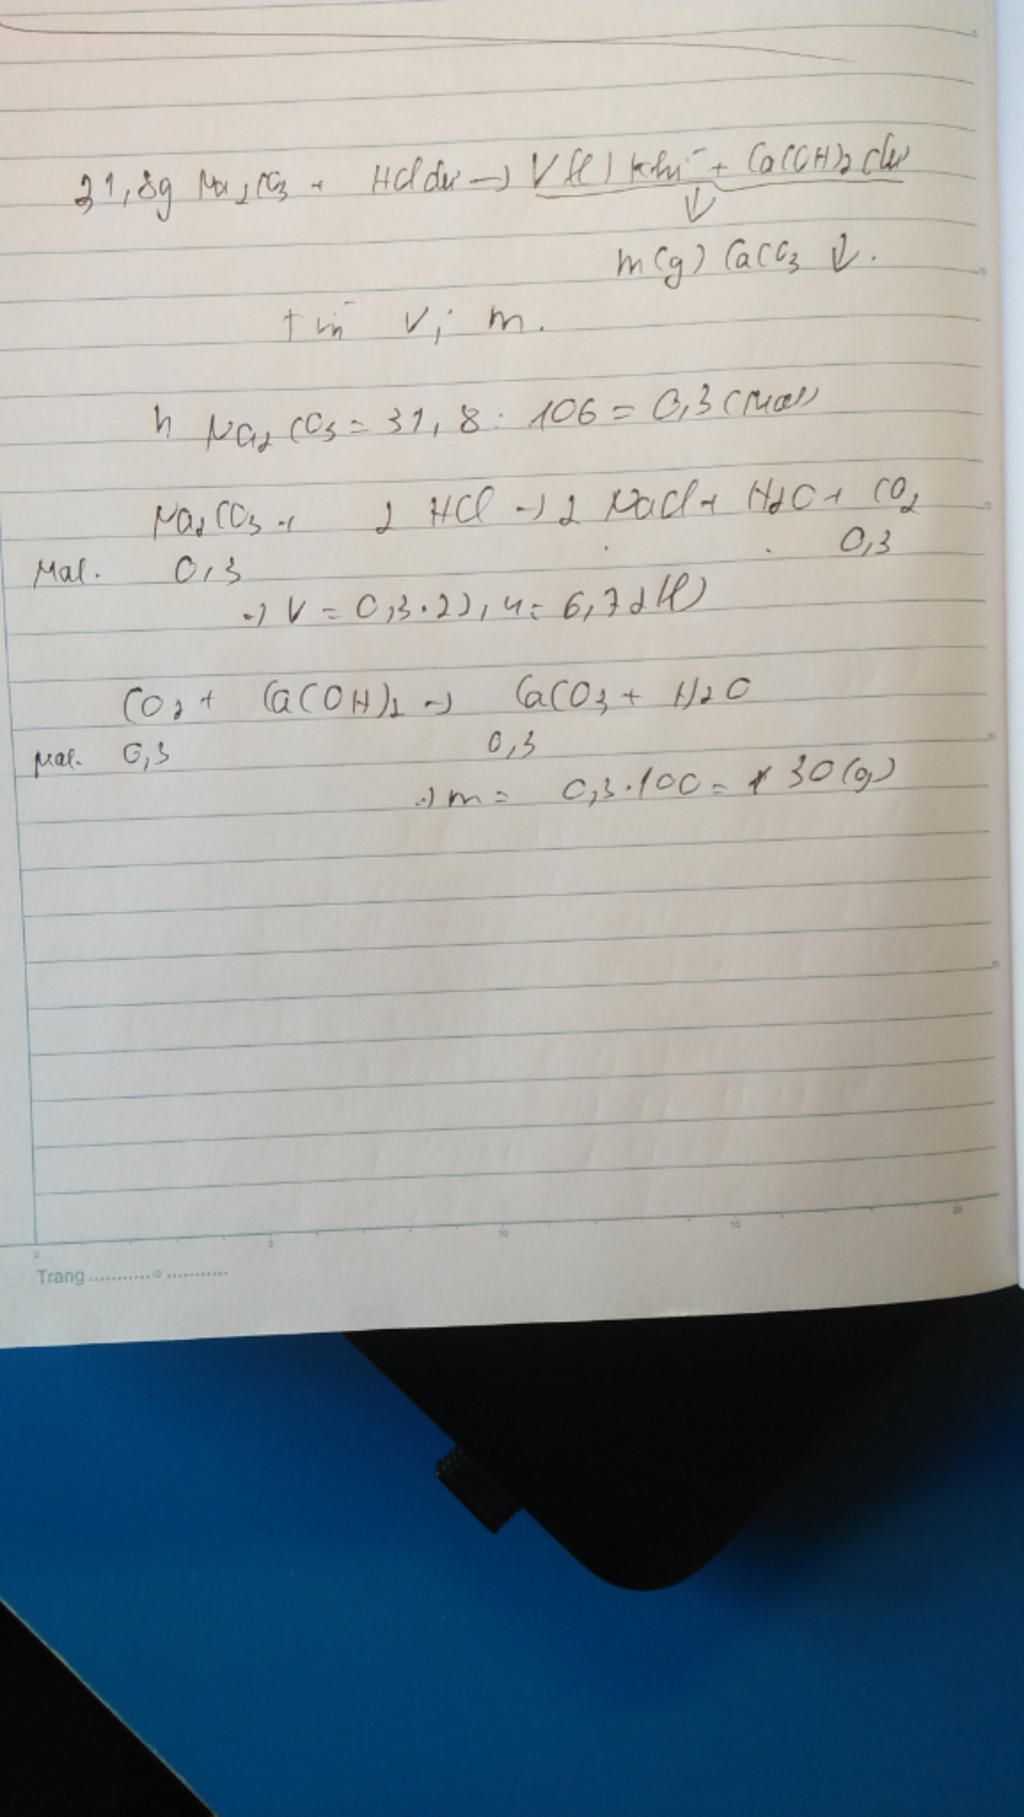 31,8g Na2CO3 + HCl dư → V(l) khí + Ca(OH)2 dư
↓
m(g) CaCO3 ↓.
tính V; m.
n Na2CO3 = 31,8 : 106 = 0,3 (mol)
Na2CO3 + 2 HCl → 2 NaCl + H2O + CO2
Mol. 0,3 0,3
→ V = 0,3.22,4 = 6,72 (l)
CO2 + Ca(OH)2 → CaCO3 + H2O
Mol. 0,3 0,3
→ m = 0,3.100 = 30 (g)
0 5 10 15 20
Trang